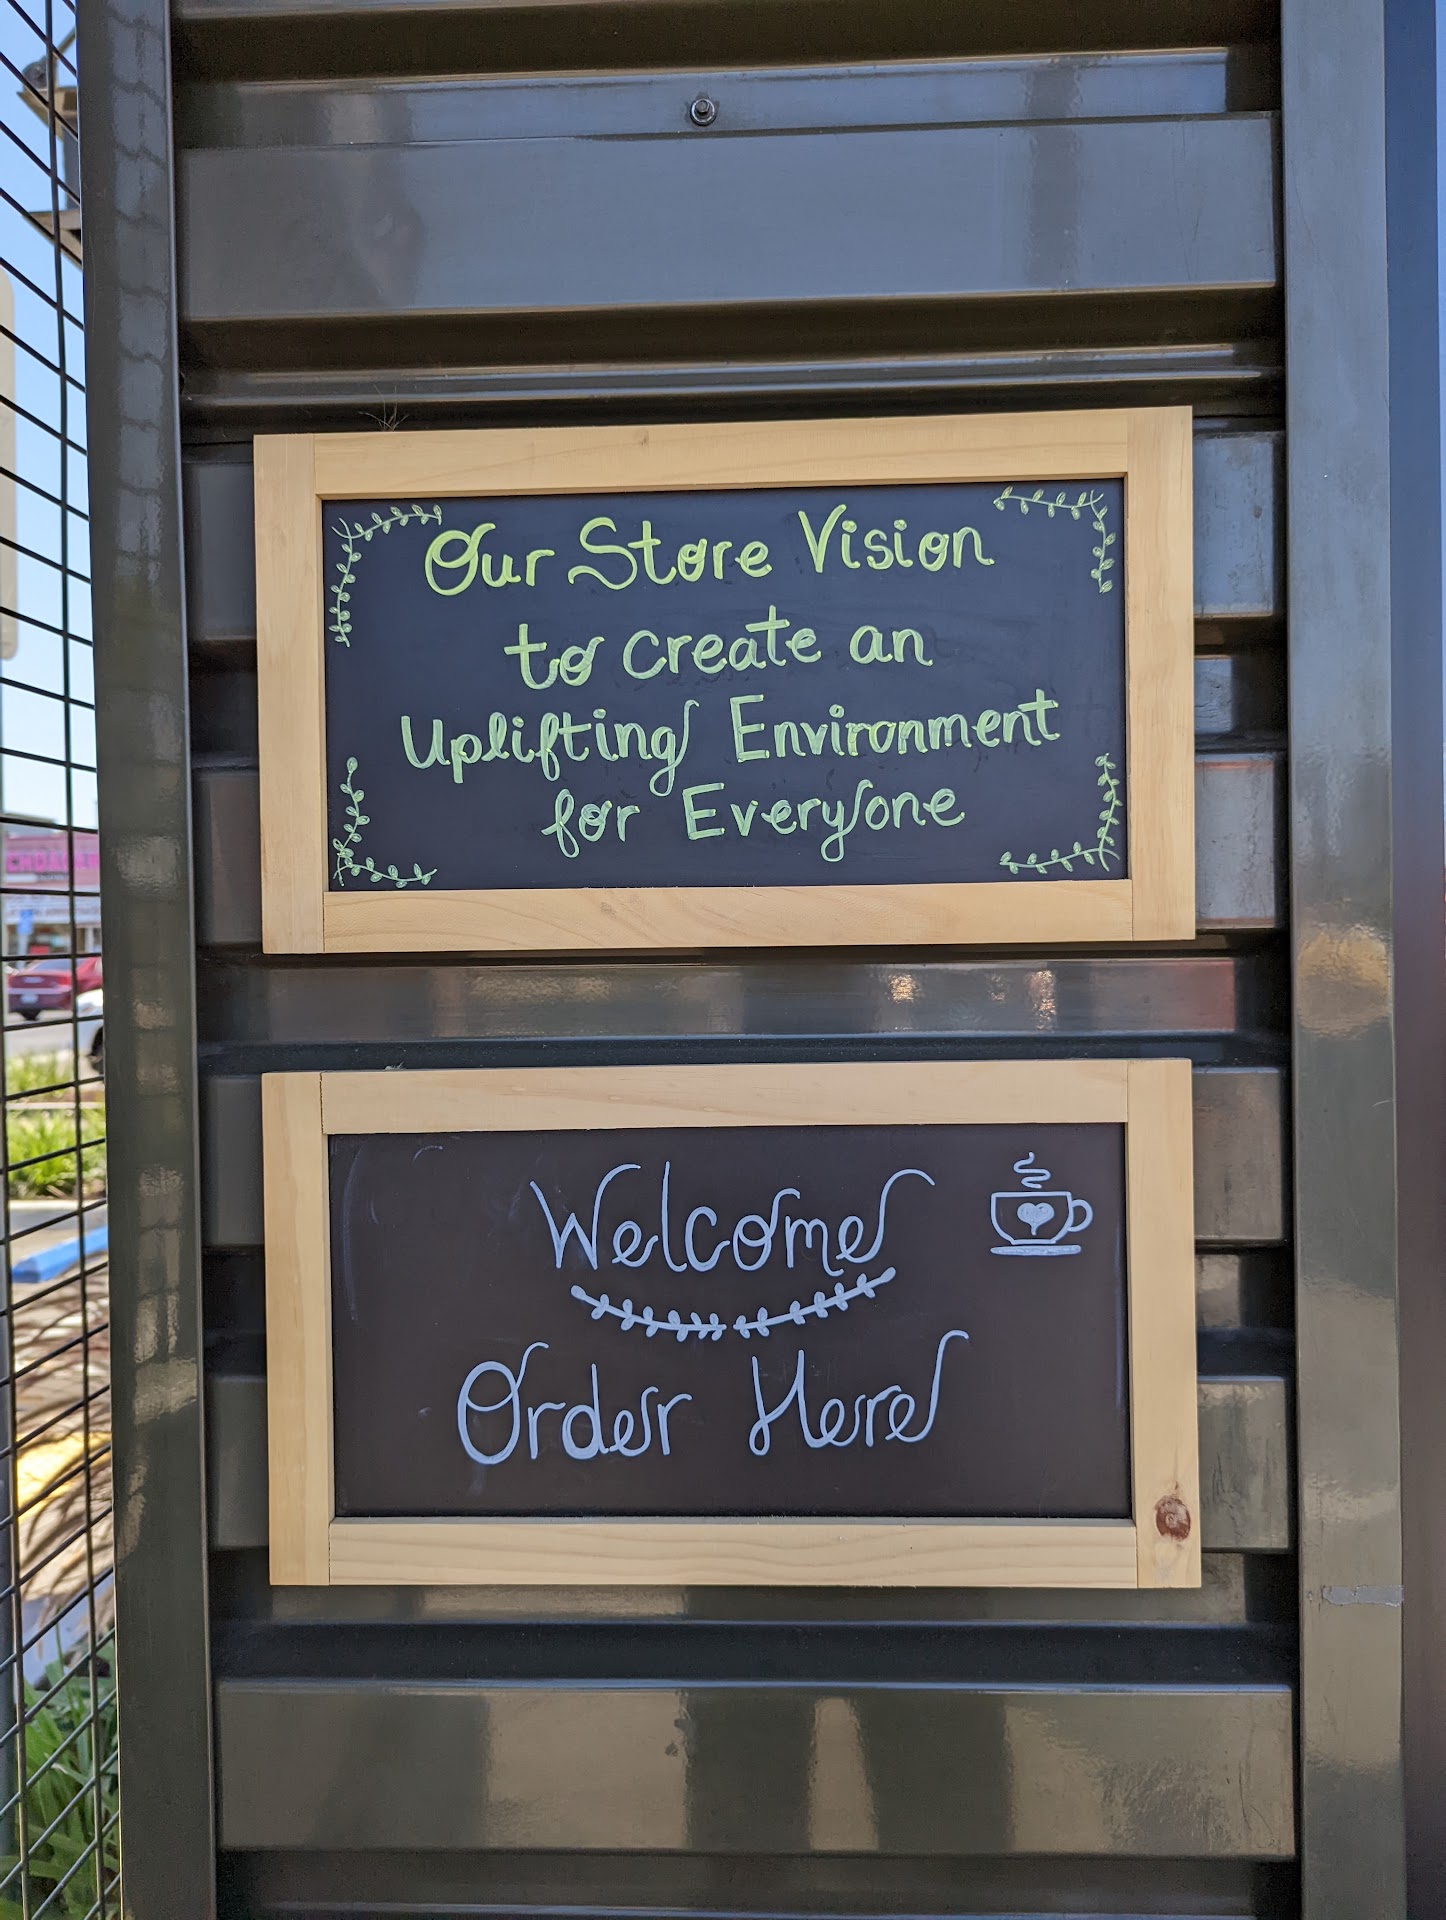 Our Store Vision
to create an
Uplifting Environment
for Everyone
Welcome
Order Here